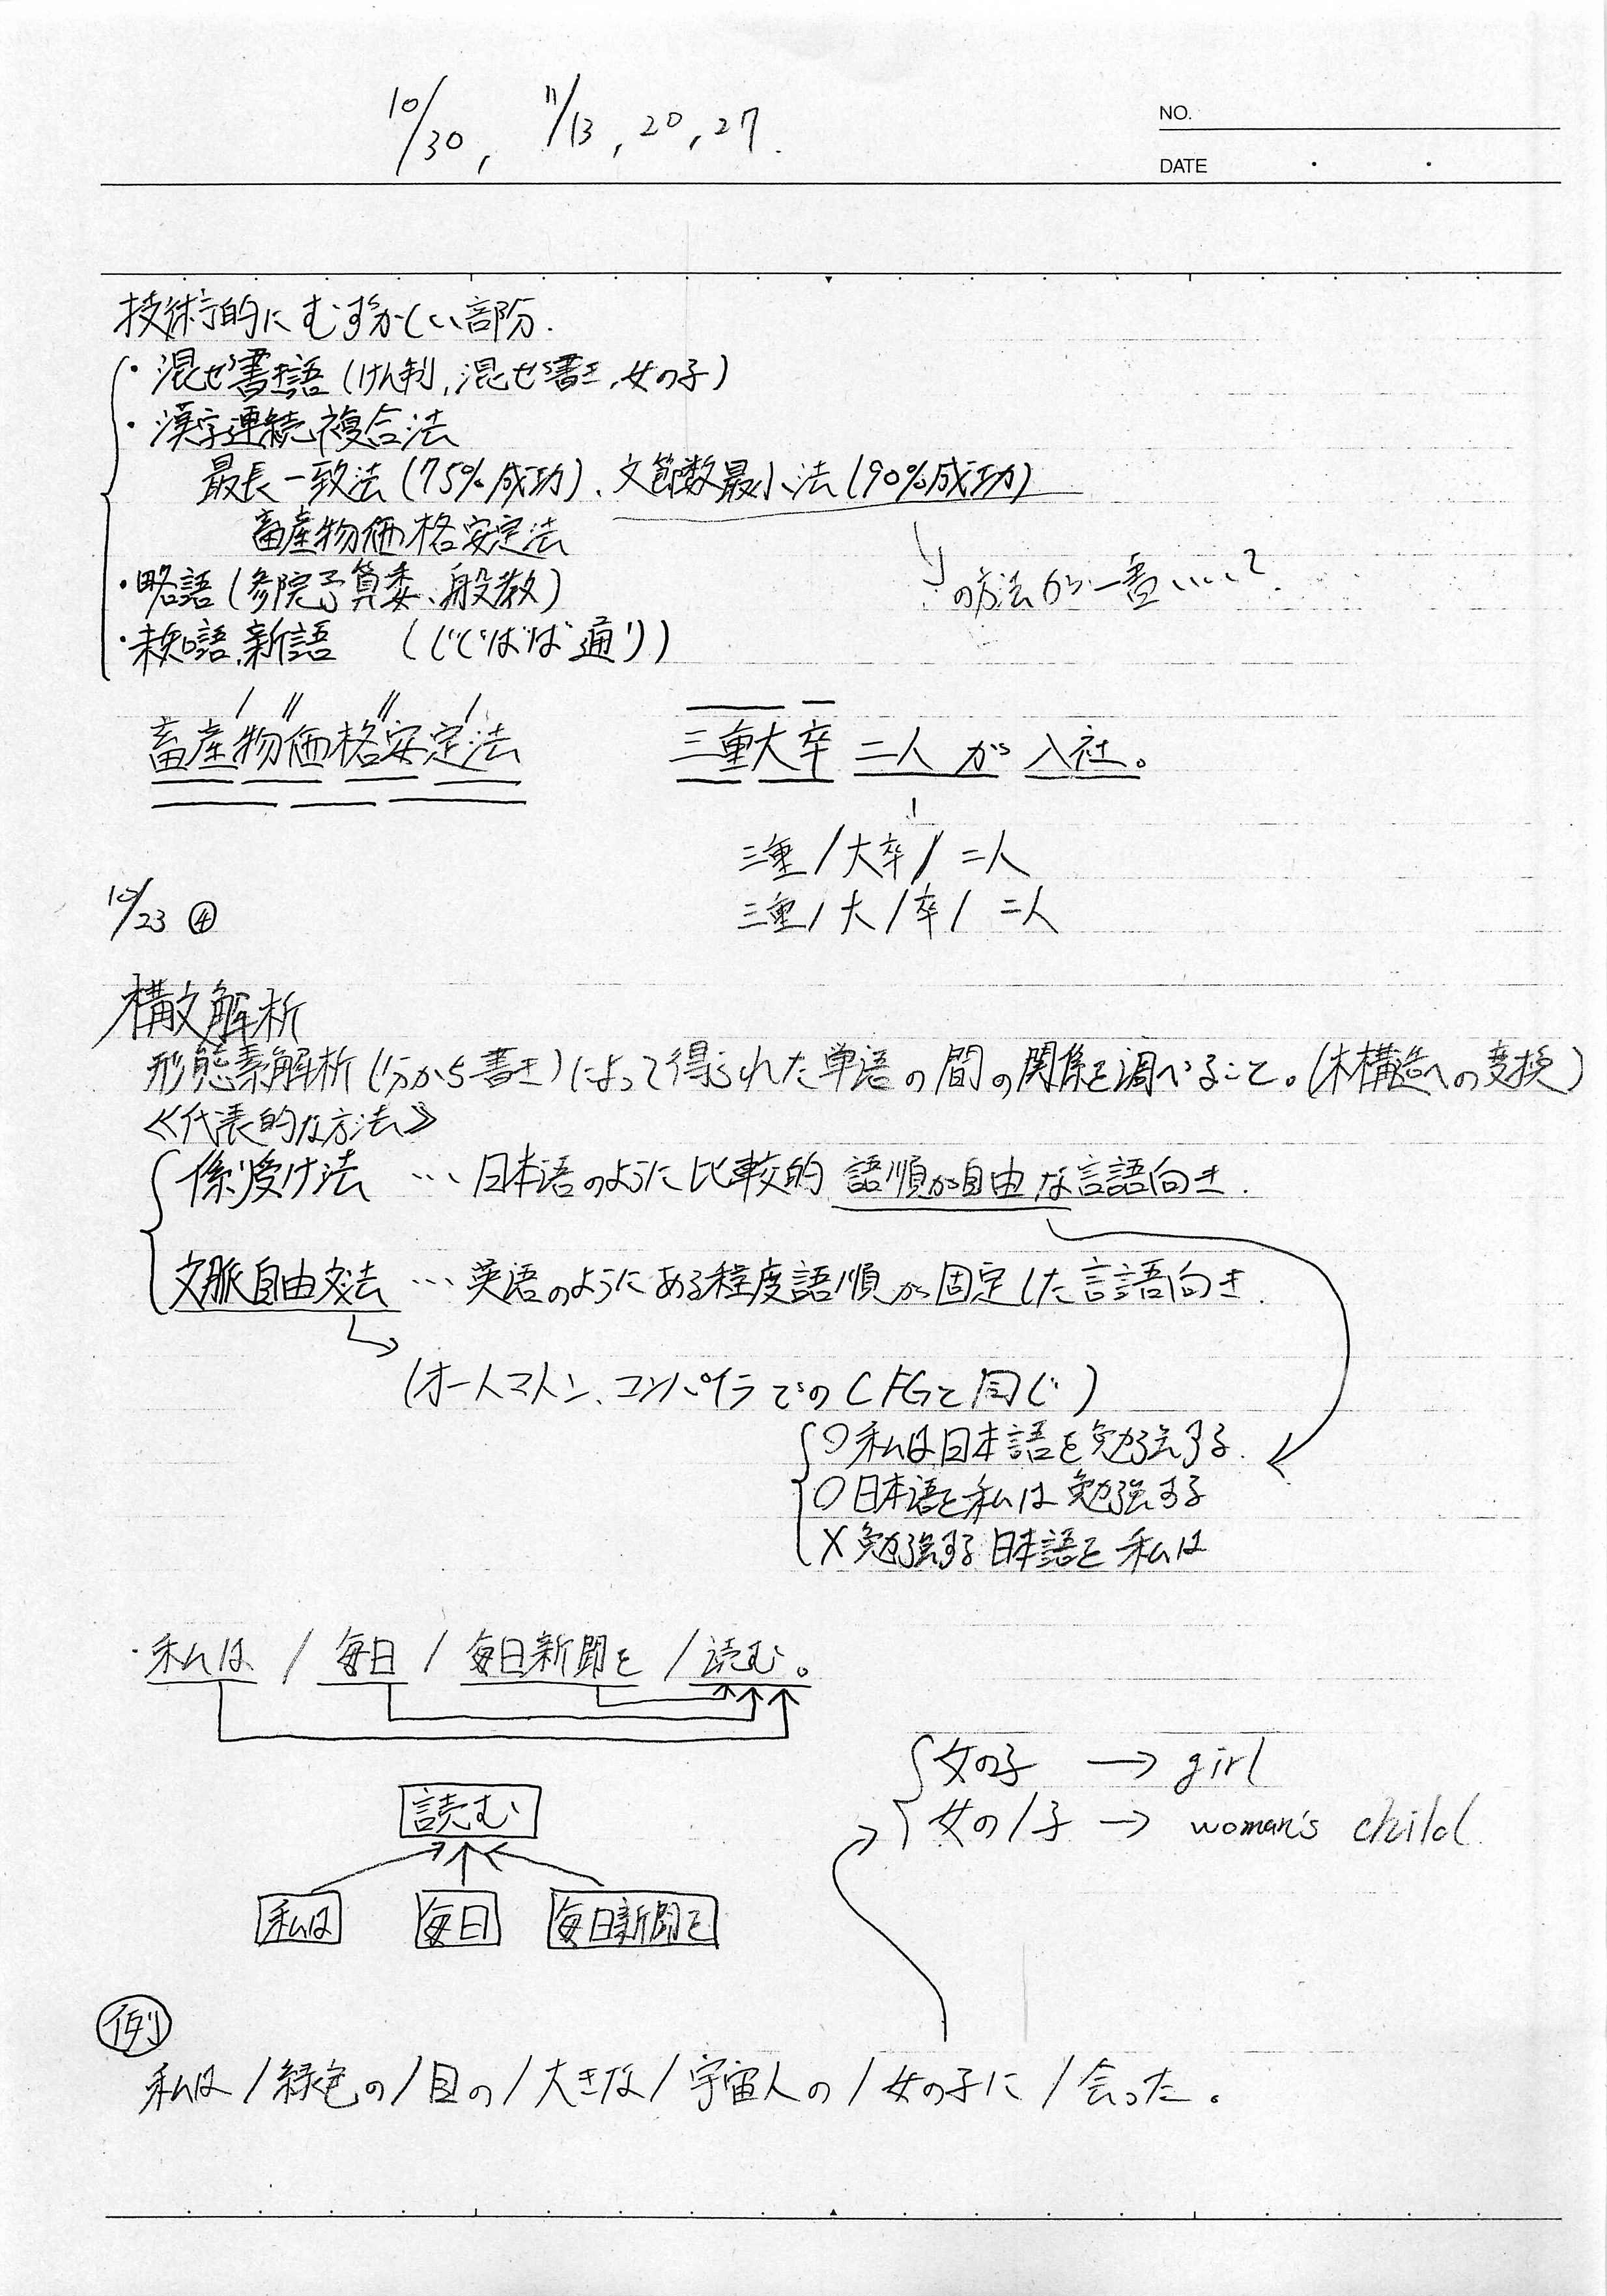 10/30, 11/13, 20, 27.
NO.
DATE
技術的にむずかしい部分.
・混ぜ書き語(けん判, 混ぜ書き, 女の子)
・漢字連続複合法
最長一致法(75%成功)、文節数最小法(90%成功)
畜産物価格安定法
の方法が一番いい?
・略語(参院予算委、般教)
・未知語、新語 (じじばば通り)
畜産物価格安定法
三重大卒 二人 が 入社。
三重/大卒/二人
三重/大/卒/二人
10/23 ④
構文解析
形態素解析(分かち書き)によって得られた単語の間の関係を調べること。(木構造への変換)
≪代表的な方法≫
係り受け法 … 日本語のように比較的 語順が自由な言語向き.
文脈自由文法 … 英語のようにある程度語順が固定した言語向き.
(オートマトン、コンパイラでのCFGと同じ)
○私は日本語を勉強する.
○日本語を私は勉強する
×勉強する日本語を私は
・私は / 毎日 / 毎日新聞を / 読む。
女の子 → girl
女の/子 → woman's child.
読む
私は 毎日 毎日新聞を
例
私は/緑色の/目の/大きな/宇宙人の/女の子に/会った。